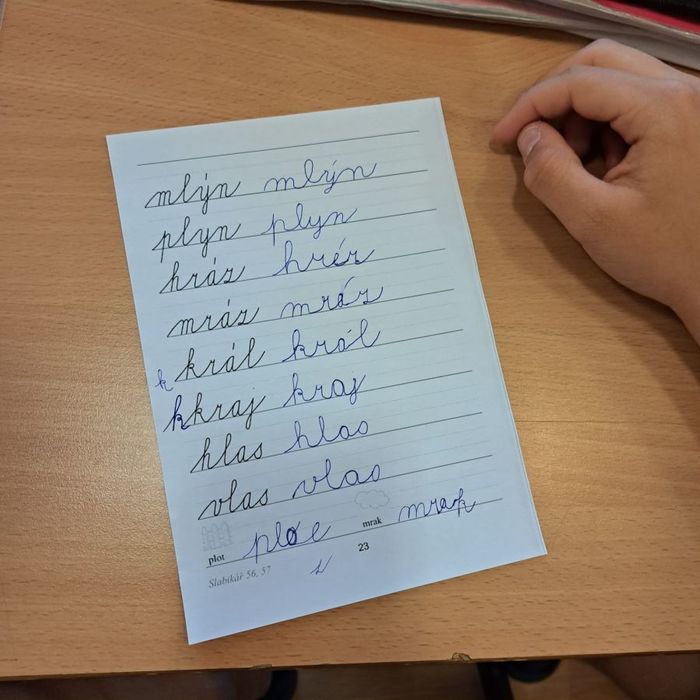 mlýn mlýn
plyn plyn
hráz hrér
mráz mráz
král král
k
kkraj kraj
hlas hlas
vlas vlas
plot ploe mrak mrak
Slabikář 56, 57 23